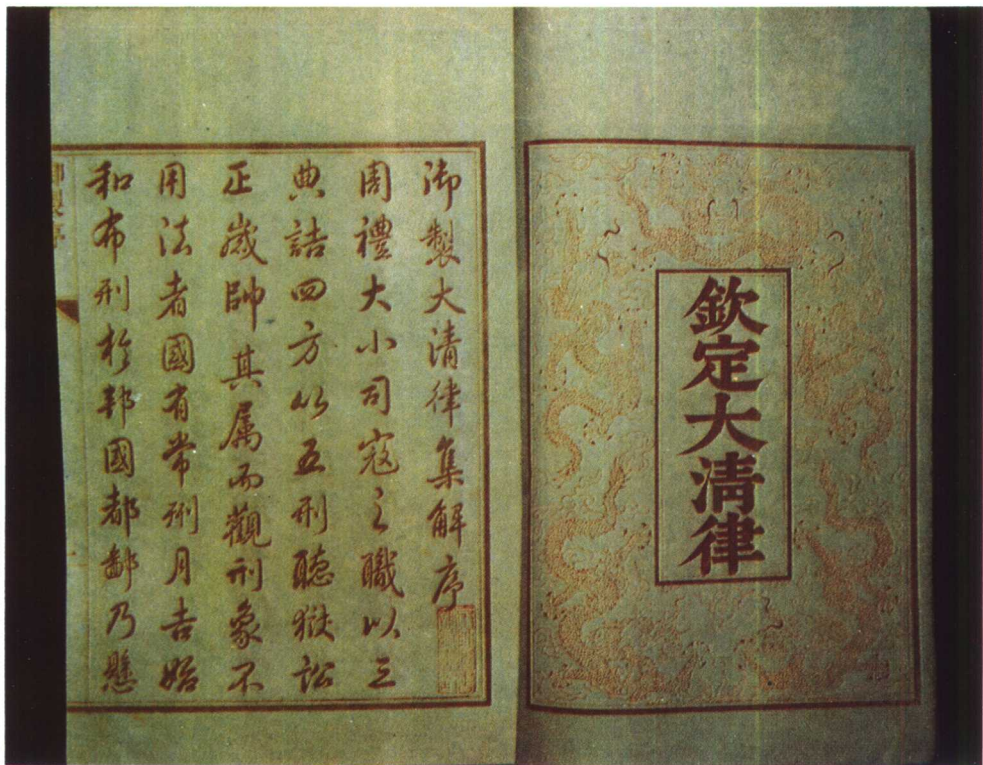 欽定大清律
御製大清律集解序
周禮大小司寇之職以三
典詰四方以五刑聽獄訟
正歲帥其属而觀刑象不
用法者國有常刑月吉始
和布刑於邦國都鄙乃懸
御製序